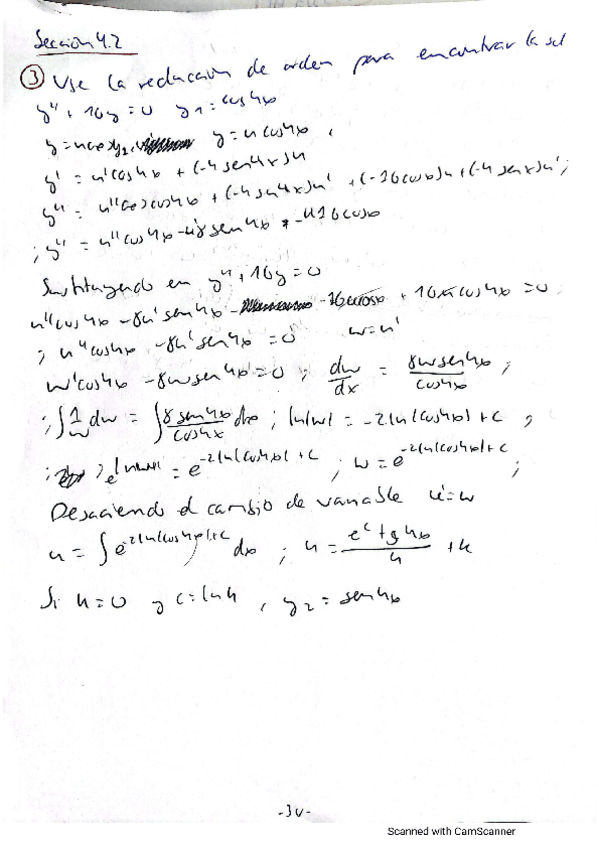 Sección 4.2
③ Use la reducción de orden para encontrar la sol
y'' + 16y = 0 y₁ = cos4x
y = u cos4x ,
y' = u'cos4x + (-4 sen4x)u
y'' = u''cos4x + (-4 sen4x)u' + (-16cos4x)u + (-4 sen4x)u' ;
; y'' = u''cos4x - u'8sen4x + -u16cos4x
Sustituyendo en y'' + 16y = 0
u''cos4x - 8u'sen4x - 16ucos4x + 16ucos4x = 0
; u''cos4x - 8u'sen4x = 0 w = u'
w'cos4x - 8wsen4x = 0 ; dw/dx = 8wsen4x/cos4x ;
; ∫ 1/w dw = ∫ 8sen4x/cos4x dx ; ln|w| = -2ln|cos4x| + c ,
; e^ln|w| = e^-2ln|cos4x| + c ; w = e^-2ln|cos4x| + c ;
Desaciendo el cambio de variable u' = w
u = ∫ e^-2ln|cos4x| + c dx ; u = e^c tg4x/4 + k
Si k = 0 y c = ln4 , y₂ = sen4x
-30-
Scanned with CamScanner